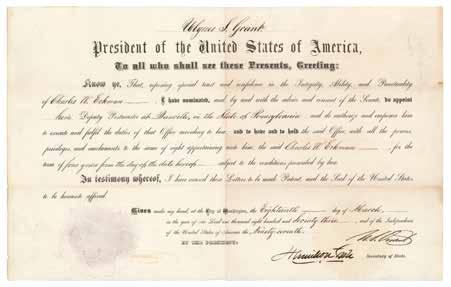 Ulysses S. Grant
President of the United States of America,
To all who shall see these Presents, Greeting:
Know ye, That, reposing special trust and confidence in the Integrity, Ability, and Punctuality
of Charles W. Eckman I have nominated, and, by and with the advice and consent of the Senate, do appoint
him Deputy Postmaster at Danville, in the State of Pennsylvania and do authorize and empower him
to execute and fulfil the duties of that Office according to law; and to have and to hold the said Office, with all the powers,
privileges, and emoluments to the same of right appertaining unto him, the said Charles W. Eckman for the
term of four years from the day of the date hereof subject to the conditions prescribed by law.
In testimony whereof, I have caused these Letters to be made Patent, and the Seal of the United States
to be hereunto affixed.
Given under my hand, at the City of Washington, the Eighteenth day of March,
in the year of our Lord one thousand eight hundred and Seventy three, and of the Independence
of the United States of America the Ninety-seventh.
U.S. Grant
BY THE PRESIDENT:
Hamilton Fish
Secretary of State.